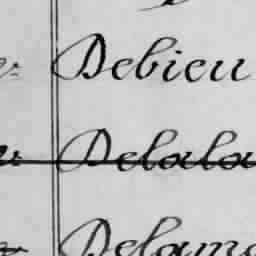 Debieu
Delala
Delama